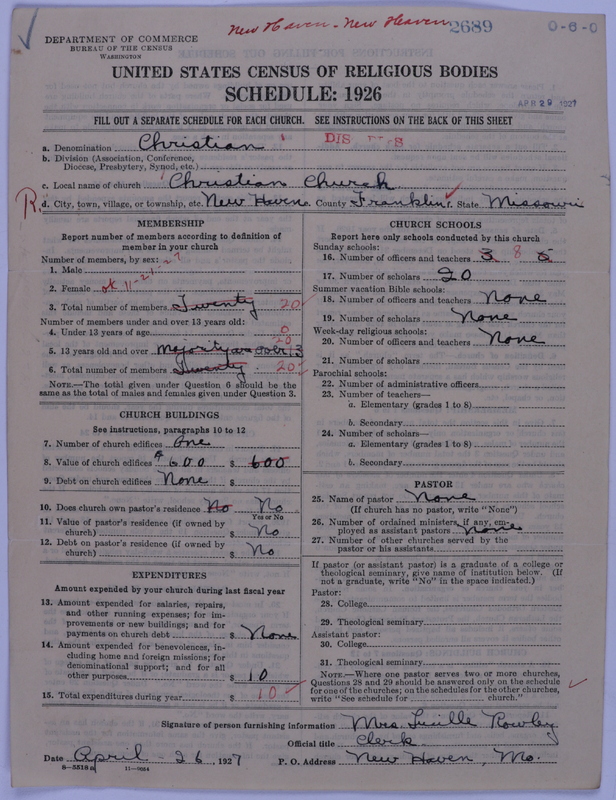 New Haven - New Heaven 2689 0-6-0
DEPARTMENT OF COMMERCE
BUREAU OF THE CENSUS
WASHINGTON
UNITED STATES CENSUS OF RELIGIOUS BODIES
SCHEDULE: 1926
APR 29 1927
FILL OUT A SEPARATE SCHEDULE FOR EACH CHURCH. SEE INSTRUCTIONS ON THE BACK OF THIS SHEET
a. Denomination Christian DIS
b. Division (Association, Conference,
Diocese, Presbytery, Synod, etc.)
c. Local name of church Christian Church
R. d. City, town, village, or township, etc. New Haven County Franklin State Missouri
MEMBERSHIP
Report number of members according to definition of
member in your church
Number of members, by sex:
1. Male
2. Female ok 11-21-27
3. Total number of members Twenty 20
Number of members under and over 13 years old:
4. Under 13 years of age 0
5. 13 years old and over majority over 13 20
6. Total number of members Twenty 20
NOTE.—The total given under Question 6 should be the
same as the total of males and females given under Question 3.
CHURCH BUILDINGS
See instructions, paragraphs 10 to 12
7. Number of church edifices One
8. Value of church edifices $600 $ 600
9. Debt on church edifices None $
10. Does church own pastor's residence No No
Yes or No
11. Value of pastor's residence (if owned by
church) $ No
12. Debt on pastor's residence (if owned by
church) $ No
EXPENDITURES
Amount expended by your church during last fiscal year
13. Amount expended for salaries, repairs,
and other running expenses; for im-
provements or new buildings; and for
payments on church debt $ None
14. Amount expended for benevolences, in-
cluding home and foreign missions; for
denominational support; and for all
other purposes $ 10
15. Total expenditures during year $ 10
CHURCH SCHOOLS
Report here only schools conducted by this church
Sunday schools:
16. Number of officers and teachers 3 8 5
17. Number of scholars 20
Summer vacation Bible schools:
18. Number of officers and teachers None
19. Number of scholars None
Week-day religious schools:
20. Number of officers and teachers None
21. Number of scholars
Parochial schools:
22. Number of administrative officers
23. Number of teachers—
a. Elementary (grades 1 to 8)
b. Secondary
24. Number of scholars—
a. Elementary (grades 1 to 8)
b. Secondary
PASTOR
25. Name of pastor None
(If church has no pastor, write "None")
26. Number of ordained ministers, if any, em-
ployed as assistant pastors None
27. Number of other churches served by the
pastor or his assistants
If pastor (or assistant pastor) is a graduate of a college or
theological seminary, give name of institution below. (If
not a graduate, write "No" in the space indicated.)
Pastor:
28. College
29. Theological seminary
Assistant pastor:
30. College
31. Theological seminary
NOTE.—Where one pastor serves two or more churches,
Questions 28 and 29 should be answered only on the schedule
for one of the churches; on the schedules for the other churches,
write "See schedule for church."
Signature of person furnishing information Mrs. Lucille Rowley
Official title Clerk
Date April - 26, 1927 P. O. Address New Haven, Mo.
8-5518 a 11-9064